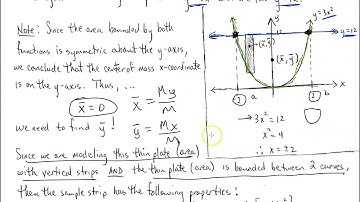 Note: Since the area bounded by both
functions is symmetric about the y-axis,
we conclude that the center of mass x-coordinate
is on the y-axis. Thus, ...
x̄ = 0 x̄ = My/M
we need to find ȳ! ȳ = Mx/M
Since we are modeling this thin plate (area)
with vertical strips AND the thin plate (area) is bounded between 2 curves,
then the sample strip has the following properties:
y = 3x²
y = 12
12
(x̃, ỹ)
(x̄, ȳ)
x
-2 a 2 b
→ 3x² = 12
x² = 4
∴ x = ±2